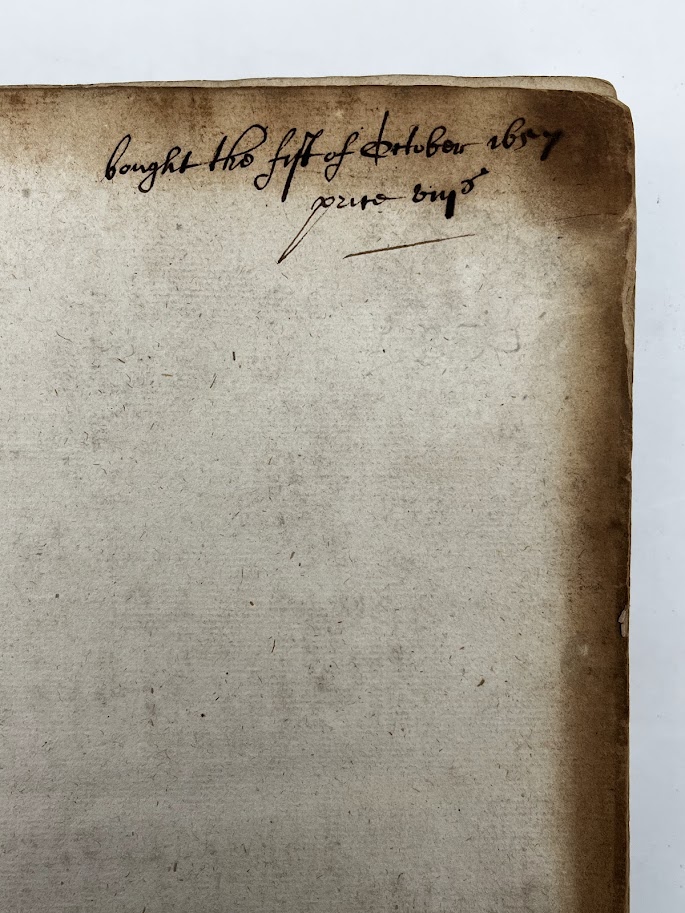 bought the fist of October 1657
price viijs